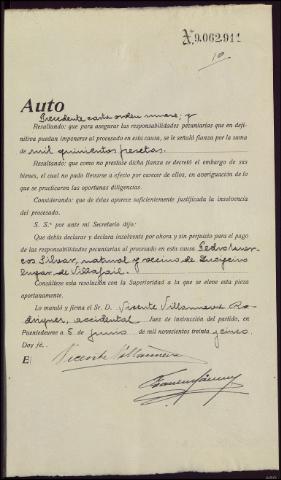 A.9.062.911
10
Auto
Precedente carta orden unase; y
Resultando: que para asegurar las responsabilidades pecuniarias que en defi-
nitiva puedan imponerse al procesado en esta causa, se le señaló fianza por la suma
de mil quinientas pesetas.
Resultando que como no prestase dicha fianza se decretó el embargo de sus
bienes, el cual no pudo llevarse a efecto por carecer de ellos, en averiguación de lo
que se practicaron las oportunas diligencias.
Considerando: que de éstas aparece suficientemente justificada la insolvencia
del procesado.
S. S.ª por ante mi Secretario dijo:
Que debía declarar y declara insolvente por ahora y sin perjuicio para el pago
de las responsabilidades pecuniarias al procesado en esta causa Pedro
natural y vecino de
lugar de
Consúltese esta resolución con la Superioridad a la que se eleve esta pieza
oportunamente.
Lo mandó y firma el Sr. D. Vicente Villanueva Ro-
driguez, accidental Juez de instrucción del partido, en
Puentedeume a 5 de Junio de mil novecientos treinta y cinco
Doy fé.
E:
Vicente Villanueva